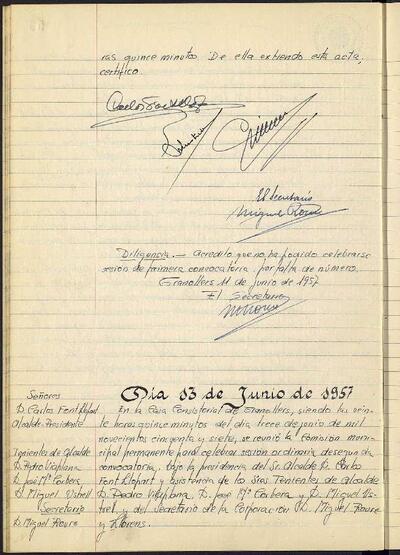 ras quince minutos. De ella extiendo esta acta,
certifico.
El Secretario
Miguel Roure
Diligencia.— Acredito que no ha podido celebrarse
sesión de primera convocatoria, por falta de número.
Granollers 11 de junio de 1957
El Secretario
Día 13 de Junio de 1957
Señores
D. Carlos Font Llopart
Alcalde-Presidente
Tenientes de Alcalde
D. Pedro Viaplana
D. José Mª Corbera
D. Miguel Ustrell
Secretario
D. Miguel Roure
En la Casa Consistorial de Granollers, siendo las vein-
te horas quince minutos del día trece de junio de mil
novecientos cincuenta y siete, se reunió la Comisión muni-
cipal permanente para celebrar sesión ordinaria de segunda
convocatoria, bajo la presidencia del Sr. Alcalde D. Carlos
Font Llopart y asistencia de los Sres. Tenientes de Alcalde
D. Pedro Viaplana, D. José Mª Corbera y D. Miguel Us-
trell y del Secretario de la Corporación D. Miguel Roure
y Llorens.